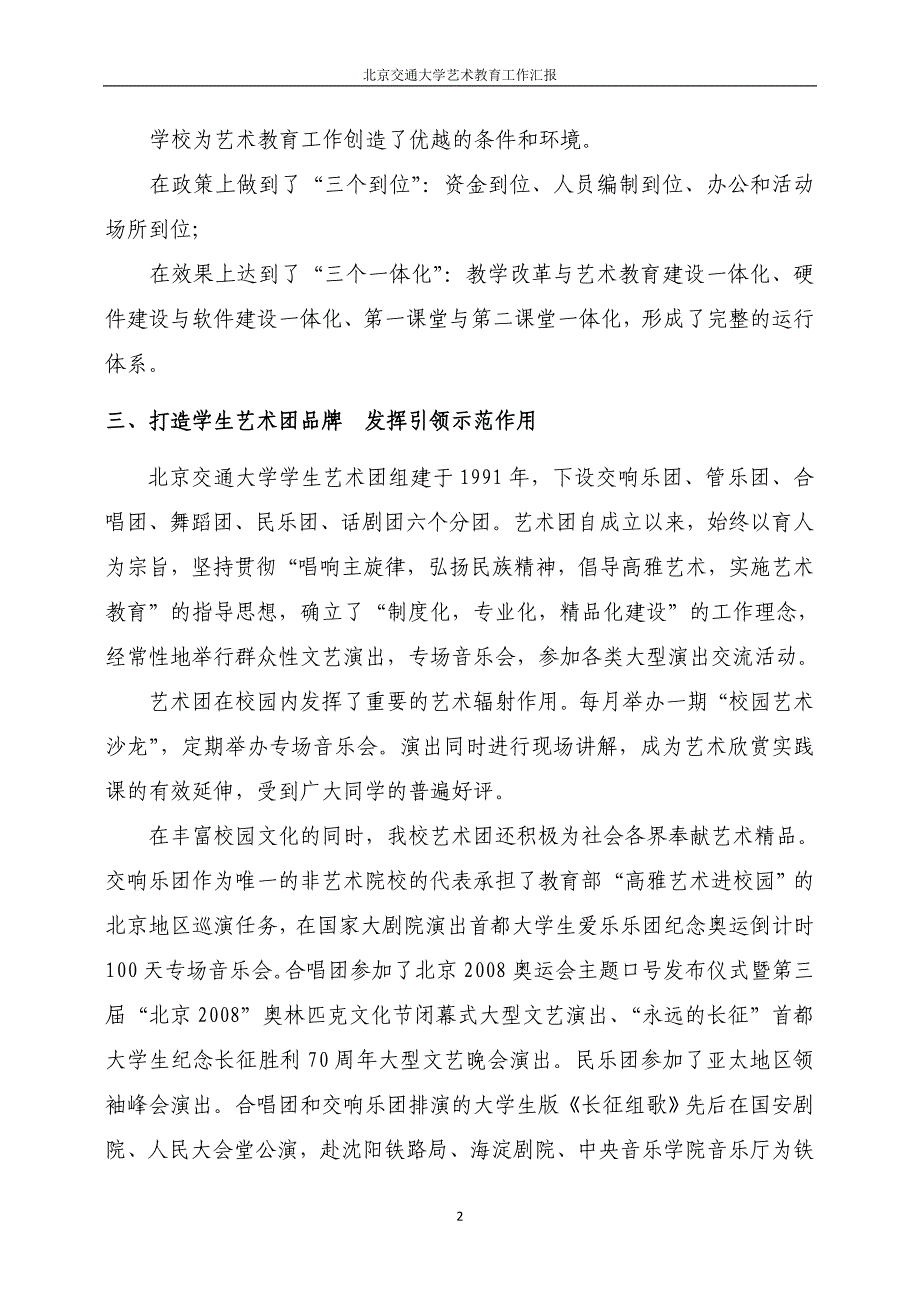 北京交通大学艺术教育工作汇报
学校为艺术教育工作创造了优越的条件和环境。
在政策上做到了“三个到位”：资金到位、人员编制到位、办公和活动
场所到位；
在效果上达到了“三个一体化”：教学改革与艺术教育建设一体化、硬
件建设与软件建设一体化、第一课堂与第二课堂一体化，形成了完整的运行
体系。
三、打造学生艺术团品牌　发挥引领示范作用
北京交通大学学生艺术团组建于 1991 年，下设交响乐团、管乐团、合
唱团、舞蹈团、民乐团、话剧团六个分团。艺术团自成立以来，始终以育人
为宗旨，坚持贯彻“唱响主旋律，弘扬民族精神，倡导高雅艺术，实施艺术
教育”的指导思想，确立了“制度化，专业化，精品化建设”的工作理念，
经常性地举行群众性文艺演出，专场音乐会，参加各类大型演出交流活动。
艺术团在校园内发挥了重要的艺术辐射作用。每月举办一期“校园艺术
沙龙”，定期举办专场音乐会。演出同时进行现场讲解，成为艺术欣赏实践
课的有效延伸，受到广大同学的普遍好评。
在丰富校园文化的同时，我校艺术团还积极为社会各界奉献艺术精品。
交响乐团作为唯一的非艺术院校的代表承担了教育部“高雅艺术进校园”的
北京地区巡演任务，在国家大剧院演出首都大学生爱乐乐团纪念奥运倒计时
100 天专场音乐会。合唱团参加了北京 2008 奥运会主题口号发布仪式暨第三
届“北京 2008”奥林匹克文化节闭幕式大型文艺演出、“永远的长征”首都
大学生纪念长征胜利 70 周年大型文艺晚会演出。民乐团参加了亚太地区领
袖峰会演出。合唱团和交响乐团排演的大学生版《长征组歌》先后在国安剧
院、人民大会堂公演，赴沈阳铁路局、海淀剧院、中央音乐学院音乐厅为铁
2